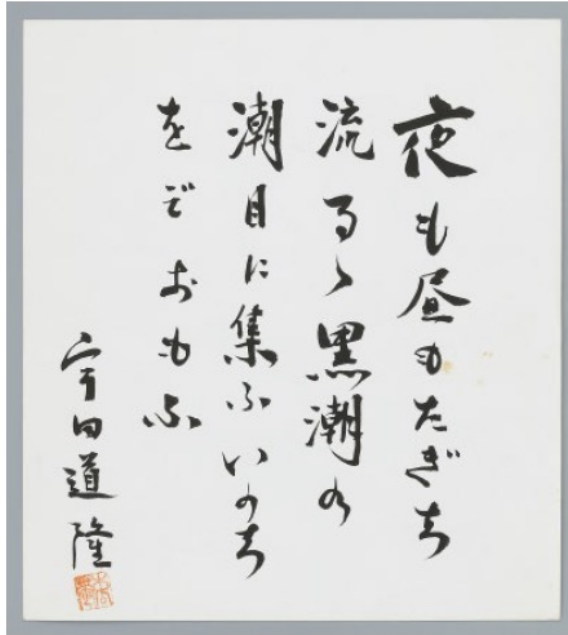 夜も昼もたぎち
流るゝ黒潮の
潮目に集ふいのち
をぞおもふ
宇田道隆